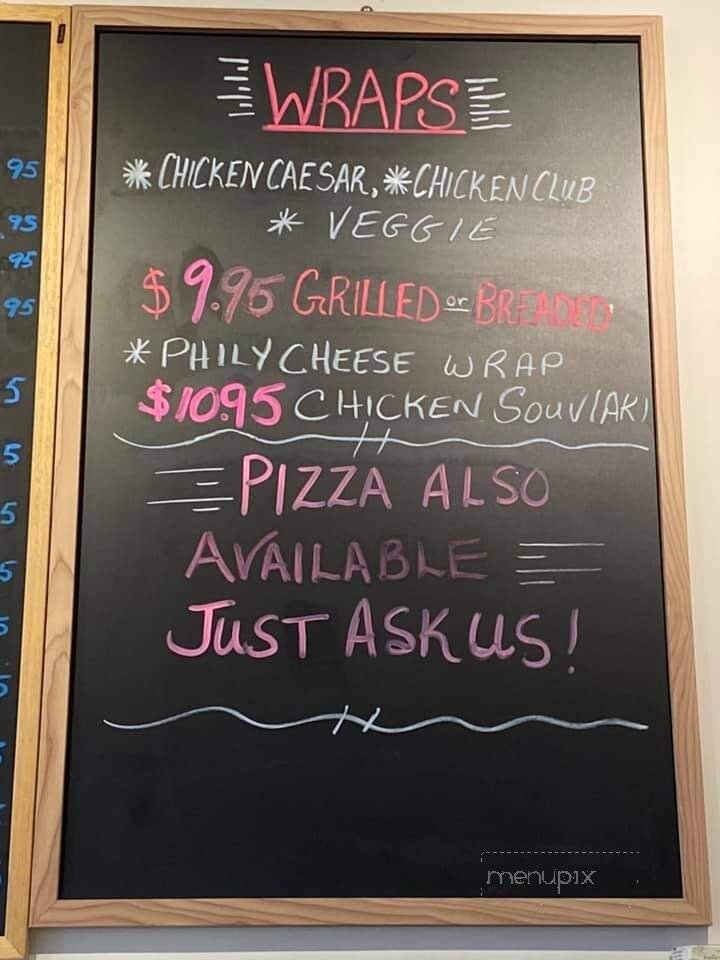 WRAPS
* CHICKEN CAESAR, * CHICKEN CLUB
* VEGGIE
$9.95 GRILLED or BREADED
* PHILY CHEESE WRAP
$10.95 CHICKEN SOUVIAKI
PIZZA ALSO
AVAILABLE
JUST ASK US!
menupix
95
.95
95
95
5
5
5
5
5
5